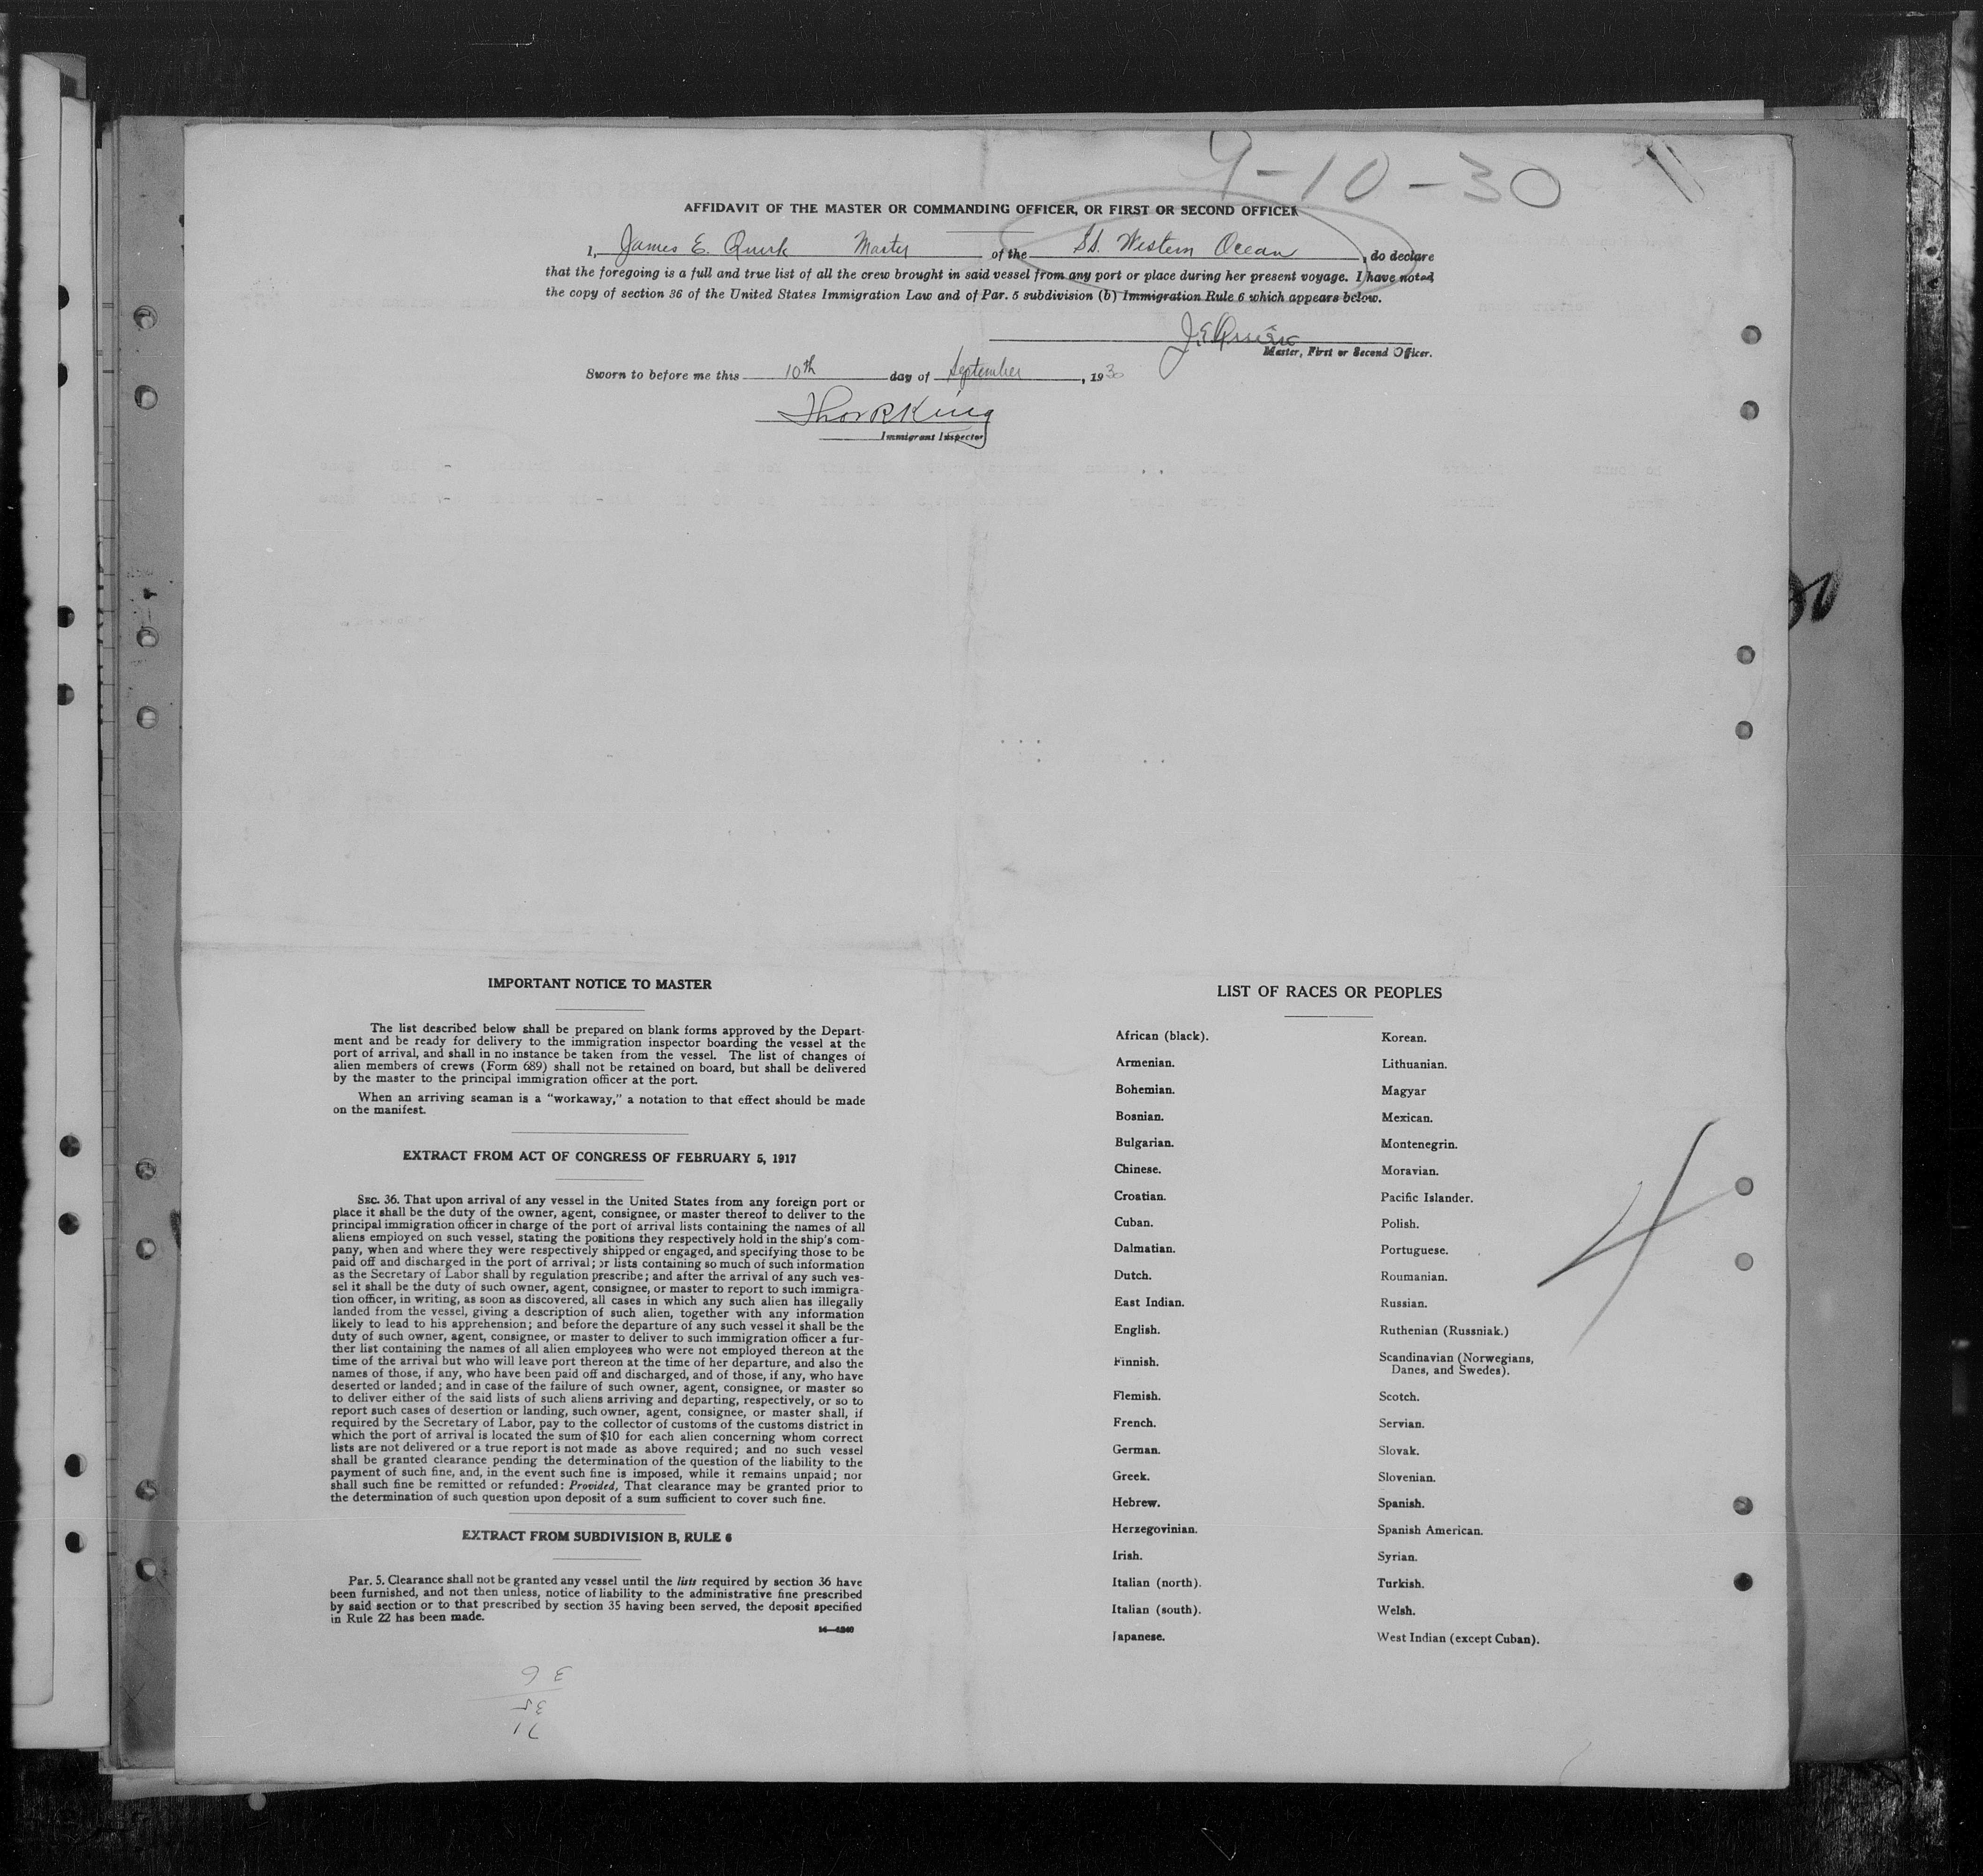 9-10-30
AFFIDAVIT OF THE MASTER OR COMMANDING OFFICER, OR FIRST OR SECOND OFFICER
I, James E. Quirk Master of the SS. Western Ocean, do declare
that the foregoing is a full and true list of all the crew brought in said vessel from any port or place during her present voyage. I have noted
the copy of section 36 of the United States Immigration Law and of Par. 5 subdivision (b) Immigration Rule 6 which appears below.
J. E. Quirk
Master, First or Second Officer.
Sworn to before me this 10th day of September, 1930
Thos R King
Immigrant Inspector
IMPORTANT NOTICE TO MASTER
The list described below shall be prepared on blank forms approved by the Depart-
ment and be ready for delivery to the immigration inspector boarding the vessel at the
port of arrival, and shall in no instance be taken from the vessel. The list of changes of
alien members of crews (Form 689) shall not be retained on board, but shall be delivered
by the master to the principal immigration officer at the port.
When an arriving seaman is a "workaway," a notation to that effect should be made
on the manifest.
EXTRACT FROM ACT OF CONGRESS OF FEBRUARY 5, 1917
SEC. 36. That upon arrival of any vessel in the United States from any foreign port or
place it shall be the duty of the owner, agent, consignee, or master thereof to deliver to the
principal immigration officer in charge of the port of arrival lists containing the names of all
aliens employed on such vessel, stating the positions they respectively hold in the ship's com-
pany, when and where they were respectively shipped or engaged, and specifying those to be
paid off and discharged in the port of arrival; or lists containing so much of such information
as the Secretary of Labor shall by regulation prescribe; and after the arrival of any such ves-
sel it shall be the duty of such owner, agent, consignee, or master to report to such immigra-
tion officer, in writing, as soon as discovered, all cases in which any such alien has illegally
landed from the vessel, giving a description of such alien, together with any information
likely to lead to his apprehension; and before the departure of any such vessel it shall be the
duty of such owner, agent, consignee, or master to deliver to such immigration officer a fur-
ther list containing the names of all alien employees who were not employed thereon at the
time of the arrival but who will leave port thereon at the time of her departure, and also the
names of those, if any, who have been paid off and discharged, and of those, if any, who have
deserted or landed; and in case of the failure of such owner, agent, consignee, or master so
to deliver either of the said lists of such aliens arriving and departing, respectively, or so to
report such cases of desertion or landing, such owner, agent, consignee, or master shall, if
required by the Secretary of Labor, pay to the collector of customs of the customs district in
which the port of arrival is located the sum of $10 for each alien concerning whom correct
lists are not delivered or a true report is not made as above required; and no such vessel
shall be granted clearance pending the determination of the question of the liability to the
payment of such fine, and, in the event such fine is imposed, while it remains unpaid; nor
shall such fine be remitted or refunded: Provided, That clearance may be granted prior to
the determination of such question upon deposit of a sum sufficient to cover such fine.
EXTRACT FROM SUBDIVISION B, RULE 6
Par. 5. Clearance shall not be granted any vessel until the lists required by section 36 have
been furnished, and not then unless, notice of liability to the administrative fine prescribed
by said section or to that prescribed by section 35 having been served, the deposit specified
in Rule 22 has been made.
14—1240
71
35
36
LIST OF RACES OR PEOPLES
African (black).
Armenian.
Bohemian.
Bosnian.
Bulgarian.
Chinese.
Croatian.
Cuban.
Dalmatian.
Dutch.
East Indian.
English.
Finnish.
Flemish.
French.
German.
Greek.
Hebrew.
Herzegovinian.
Irish.
Italian (north).
Italian (south).
Japanese.
Korean.
Lithuanian.
Magyar
Mexican.
Montenegrin.
Moravian.
Pacific Islander.
Polish.
Portuguese.
Roumanian.
Russian.
Ruthenian (Russniak.)
Scandinavian (Norwegians,
Danes, and Swedes).
Scotch.
Servian.
Slovak.
Slovenian.
Spanish.
Spanish American.
Syrian.
Turkish.
Welsh.
West Indian (except Cuban).